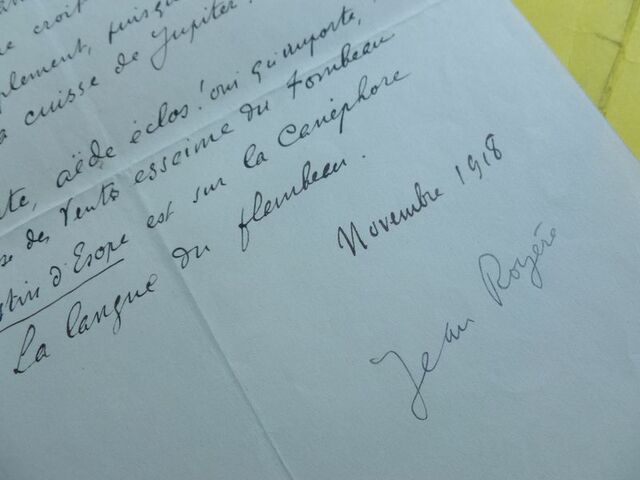 e croit
plement, puisqu
a cuisse de Jupiter.
te, aède éclos! oui qu'importe,
se des Vents esseime du Tombeau
stin d'Esope est sur la Canéphore
La langue du flembeau.
Novembre 1918
Jean Royère